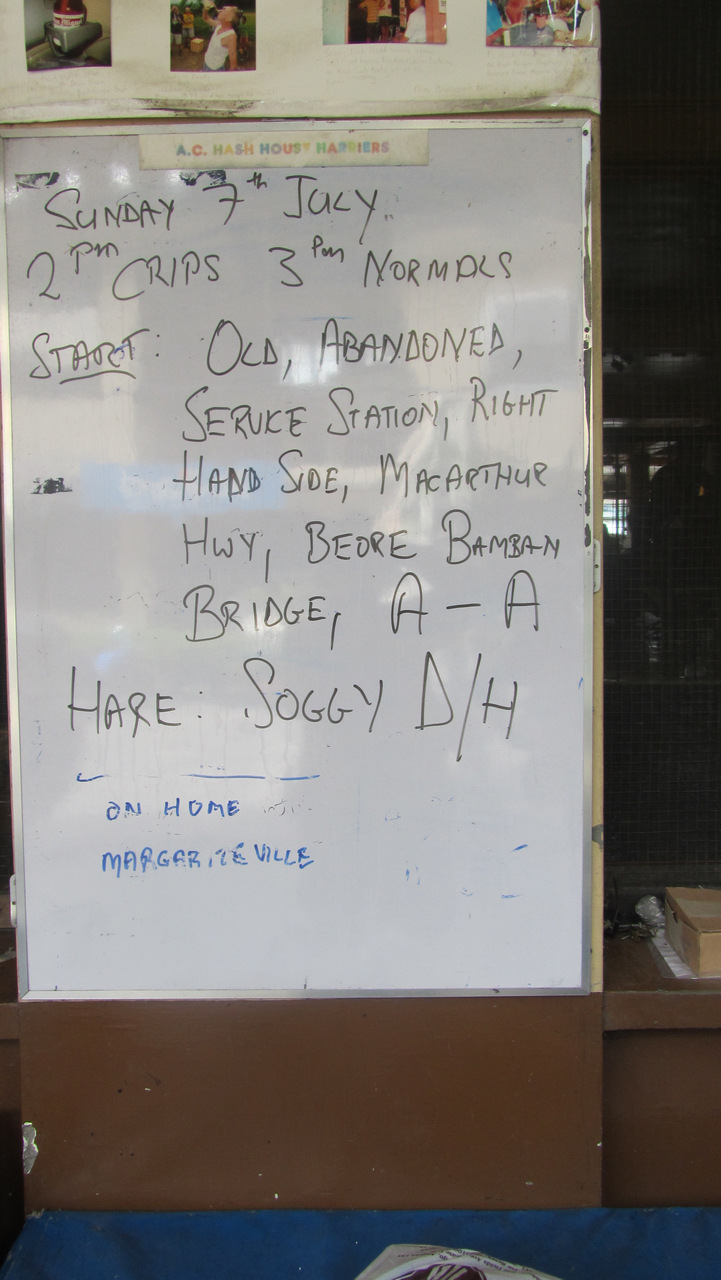 A.C. HASH HOUSE HARRIERS
SUNDAY 7th JULY
2 PM CRIPS 3 Pm NORMALS
START: OLD, ABANDONED,
SERVICE STATION, RIGHT
HAND SIDE, MACARTHUR
HWY, BEORE BAMBAN
BRIDGE, A - A
HARE: SOGGY D/H
ON HOME
MARGARITEVILLE